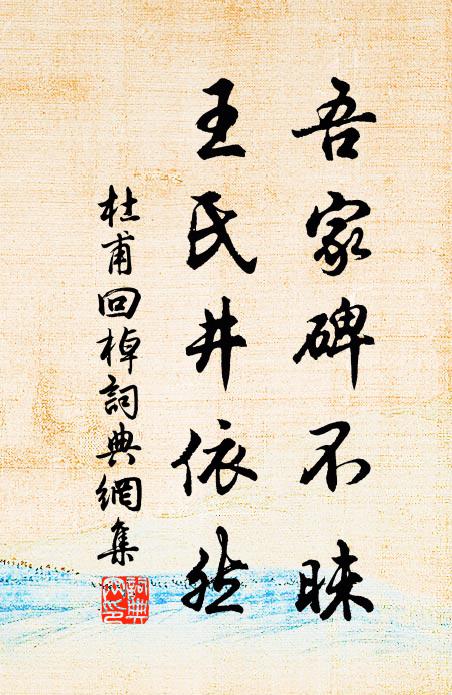 吾家碑不昧
王氏井依然
杜甫回棹詞典網集